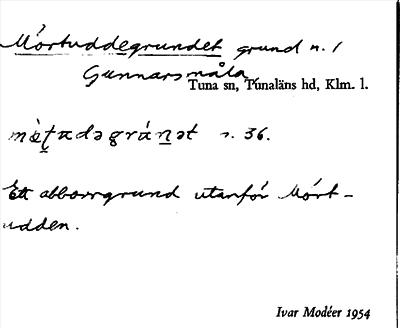 Mörtuddegrundet grund n. 1
Gunnarsmåla,
Tuna sn, Tunaläns hd, Klm. l.
s. 36.
Ett abborrgrund utanför Mört-
udden.
Ivar Modéer 1954